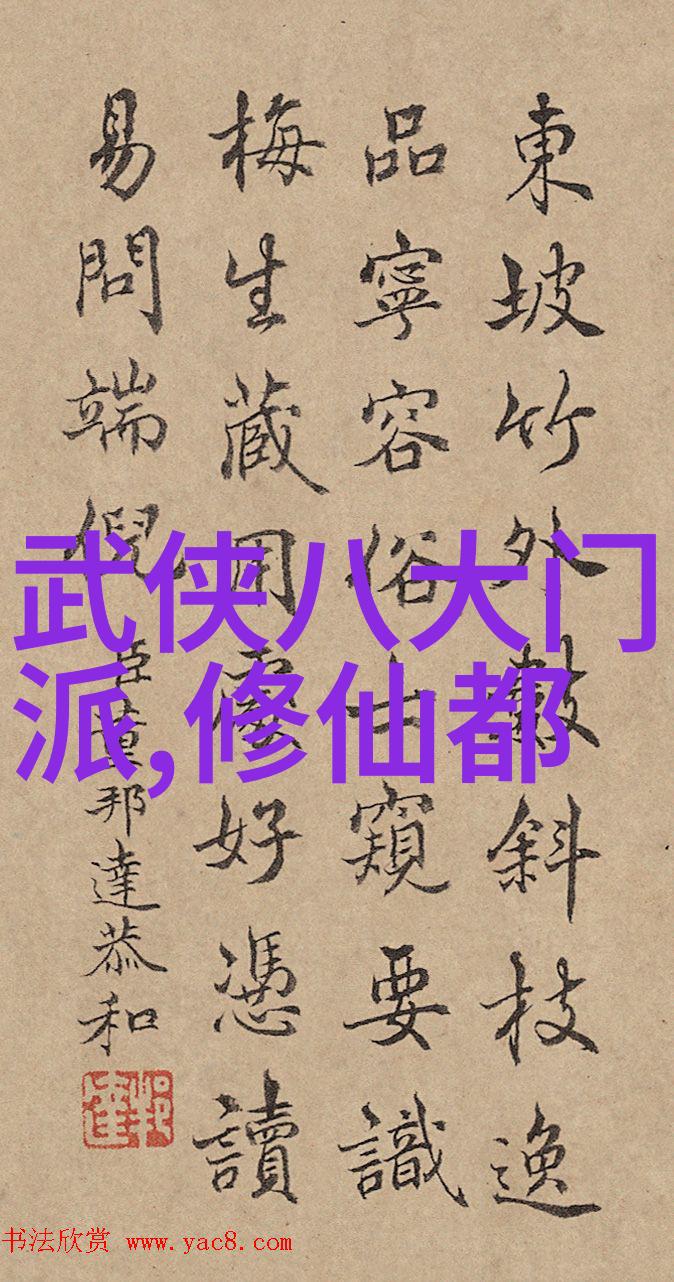 東坡竹外數斜枝逸
品寧容俗士窺要識
梅生藏用處好憑讀
易問端倪
臣董邦達恭和
武侠八大门
派,修仙都
书法欣赏 www.yac8.com